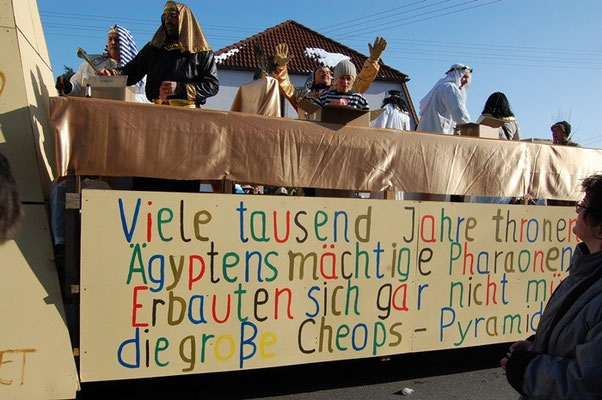 Viele tausend Jahre thronen
Ägyptens mächtige Pharaonen
Erbauten sich gar nicht
die große Cheops - Pyramid
ET